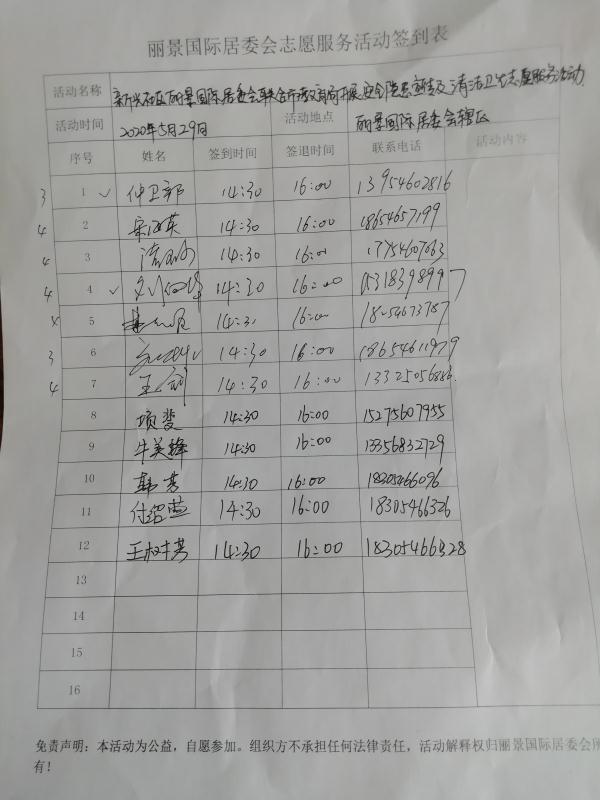 丽景国际居委会志愿服务活动签到表
活动名称 新兴社区丽景国际居委会联合市教育局开展安全隐患 及清洁卫生志愿服务活动
活动时间 2020年5月29日 活动地点 丽景国际居委会辖区
序号 姓名 签到时间 签退时间 联系电话 活动内容
3 1 ✓ 14:30 16:00 13954602816
4 2 14:30 16:00 18654657199
4 3 14:30 17754607063
4 4 ✓ 14:30 16:00
5
3 6 14:30 16:00 18654611979
4 7 王 14:30 16:00
8 项斐 14:30 16:00 15275607955
9 牛美锋 14:30 16:00 13356832729
10 韩芳 14:30 16:00 18305466096
11 14:30 16:00 18305466326
12 14:30 16:00 18305466328
13
14
15
16
免责声明：本活动为公益，自愿参加。组织方不承担任何法律责任，活动解释权归丽景国际居委会所
有！